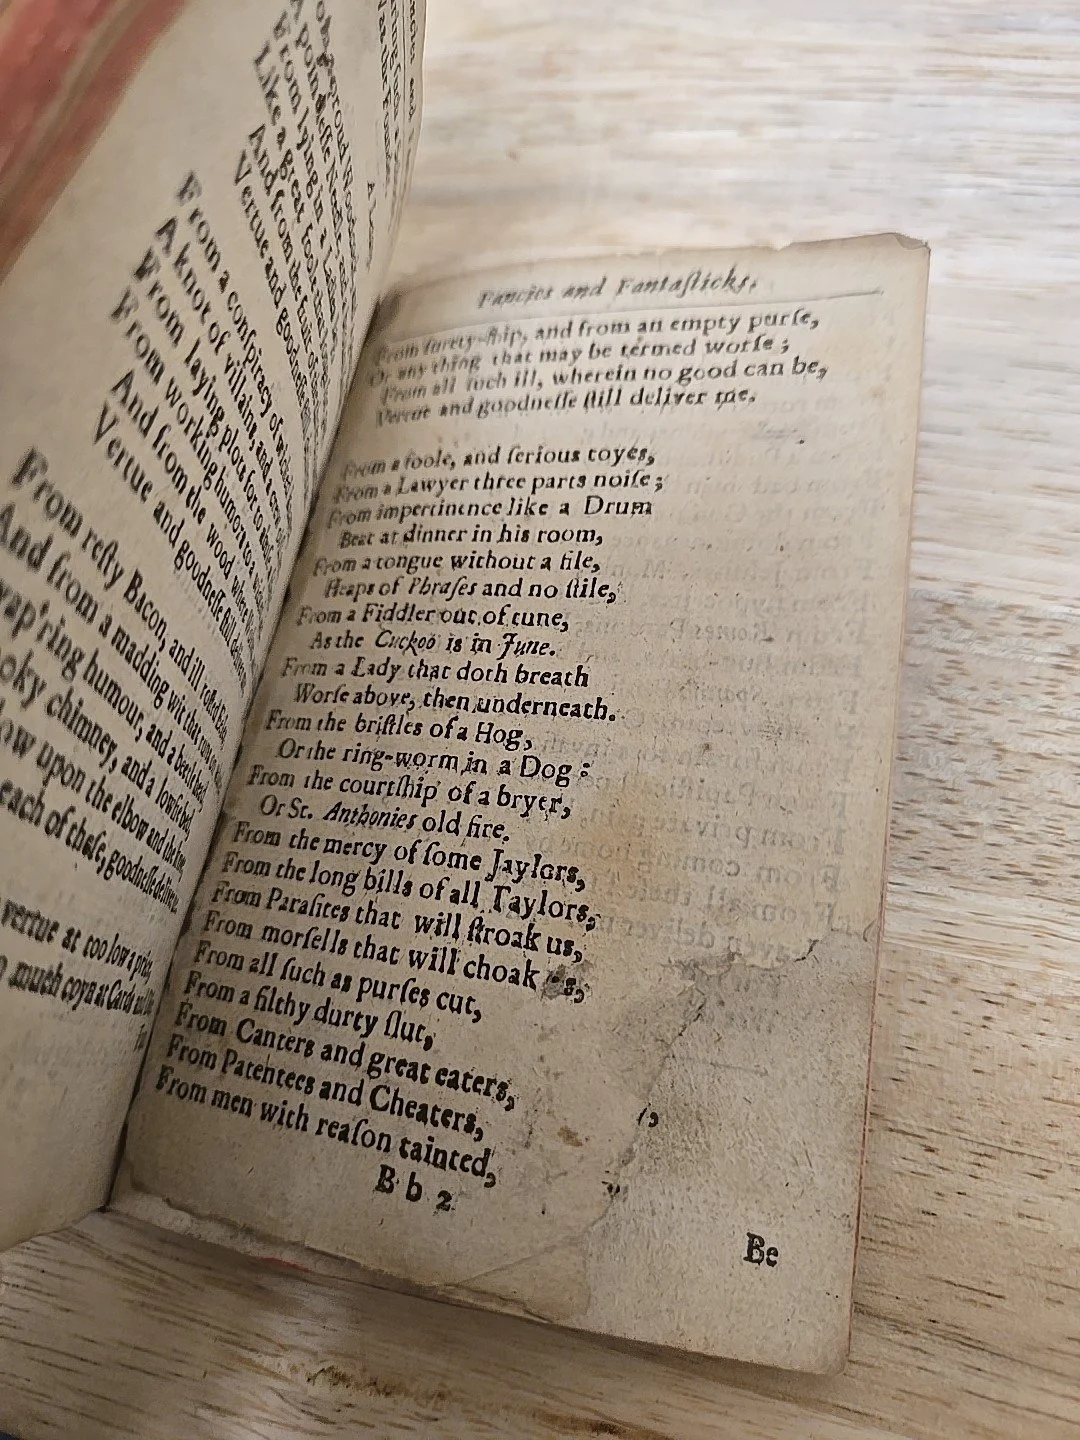 From lying in a
Like a great foole that
And from the fruit of
Vertue and goodneſſe
From a conſpiracy of wicked
A knot of villains, and a crew of
From laying plots for to abuſe a
From working humors to a
And from the wood where
Vertue and goodneſſe ſtill deliver
From reſty Bacon, and ill roſted
And from a madding wit that runs on
humour, and a beetle head
chimney, and a lowſie bed,
upon the elbow and the knee,
each of theſe, goodneſſe deliver
vertue at too low a price,
much coyn at Cards and Dice
Fancies and Fantaſticks.
From ſurety-ſhip, and from an empty purſe,
Or any thing that may be termed worſe;
From all ſuch ill, wherein no good can be,
Vertue and goodneſſe ſtill deliver me.
From a foole, and ſerious toyes,
From a Lawyer three parts noiſe;
From impertinence like a Drum
Beat at dinner in his room,
From a tongue without a file,
Heaps of Phraſes and no ſtile,
From a Fiddler out of tune,
As the Cuckoo is in June.
From a Lady that doth breath
Worſe above, then underneath.
From the briſtles of a Hog,
Or the ring-worm in a Dog:
From the courtſhip of a bryer,
Or St. Anthonies old fire.
From the mercy of ſome Jaylors,
From the long bills of all Taylors,
From Paraſites that will ſtroak us,
From morſells that will choak us,
From all ſuch as purſes cut,
From a filthy durty ſlut,
From Canters and great eaters,
From Patentees and Cheaters,
From men with reaſon tainted,
B b 2
Be